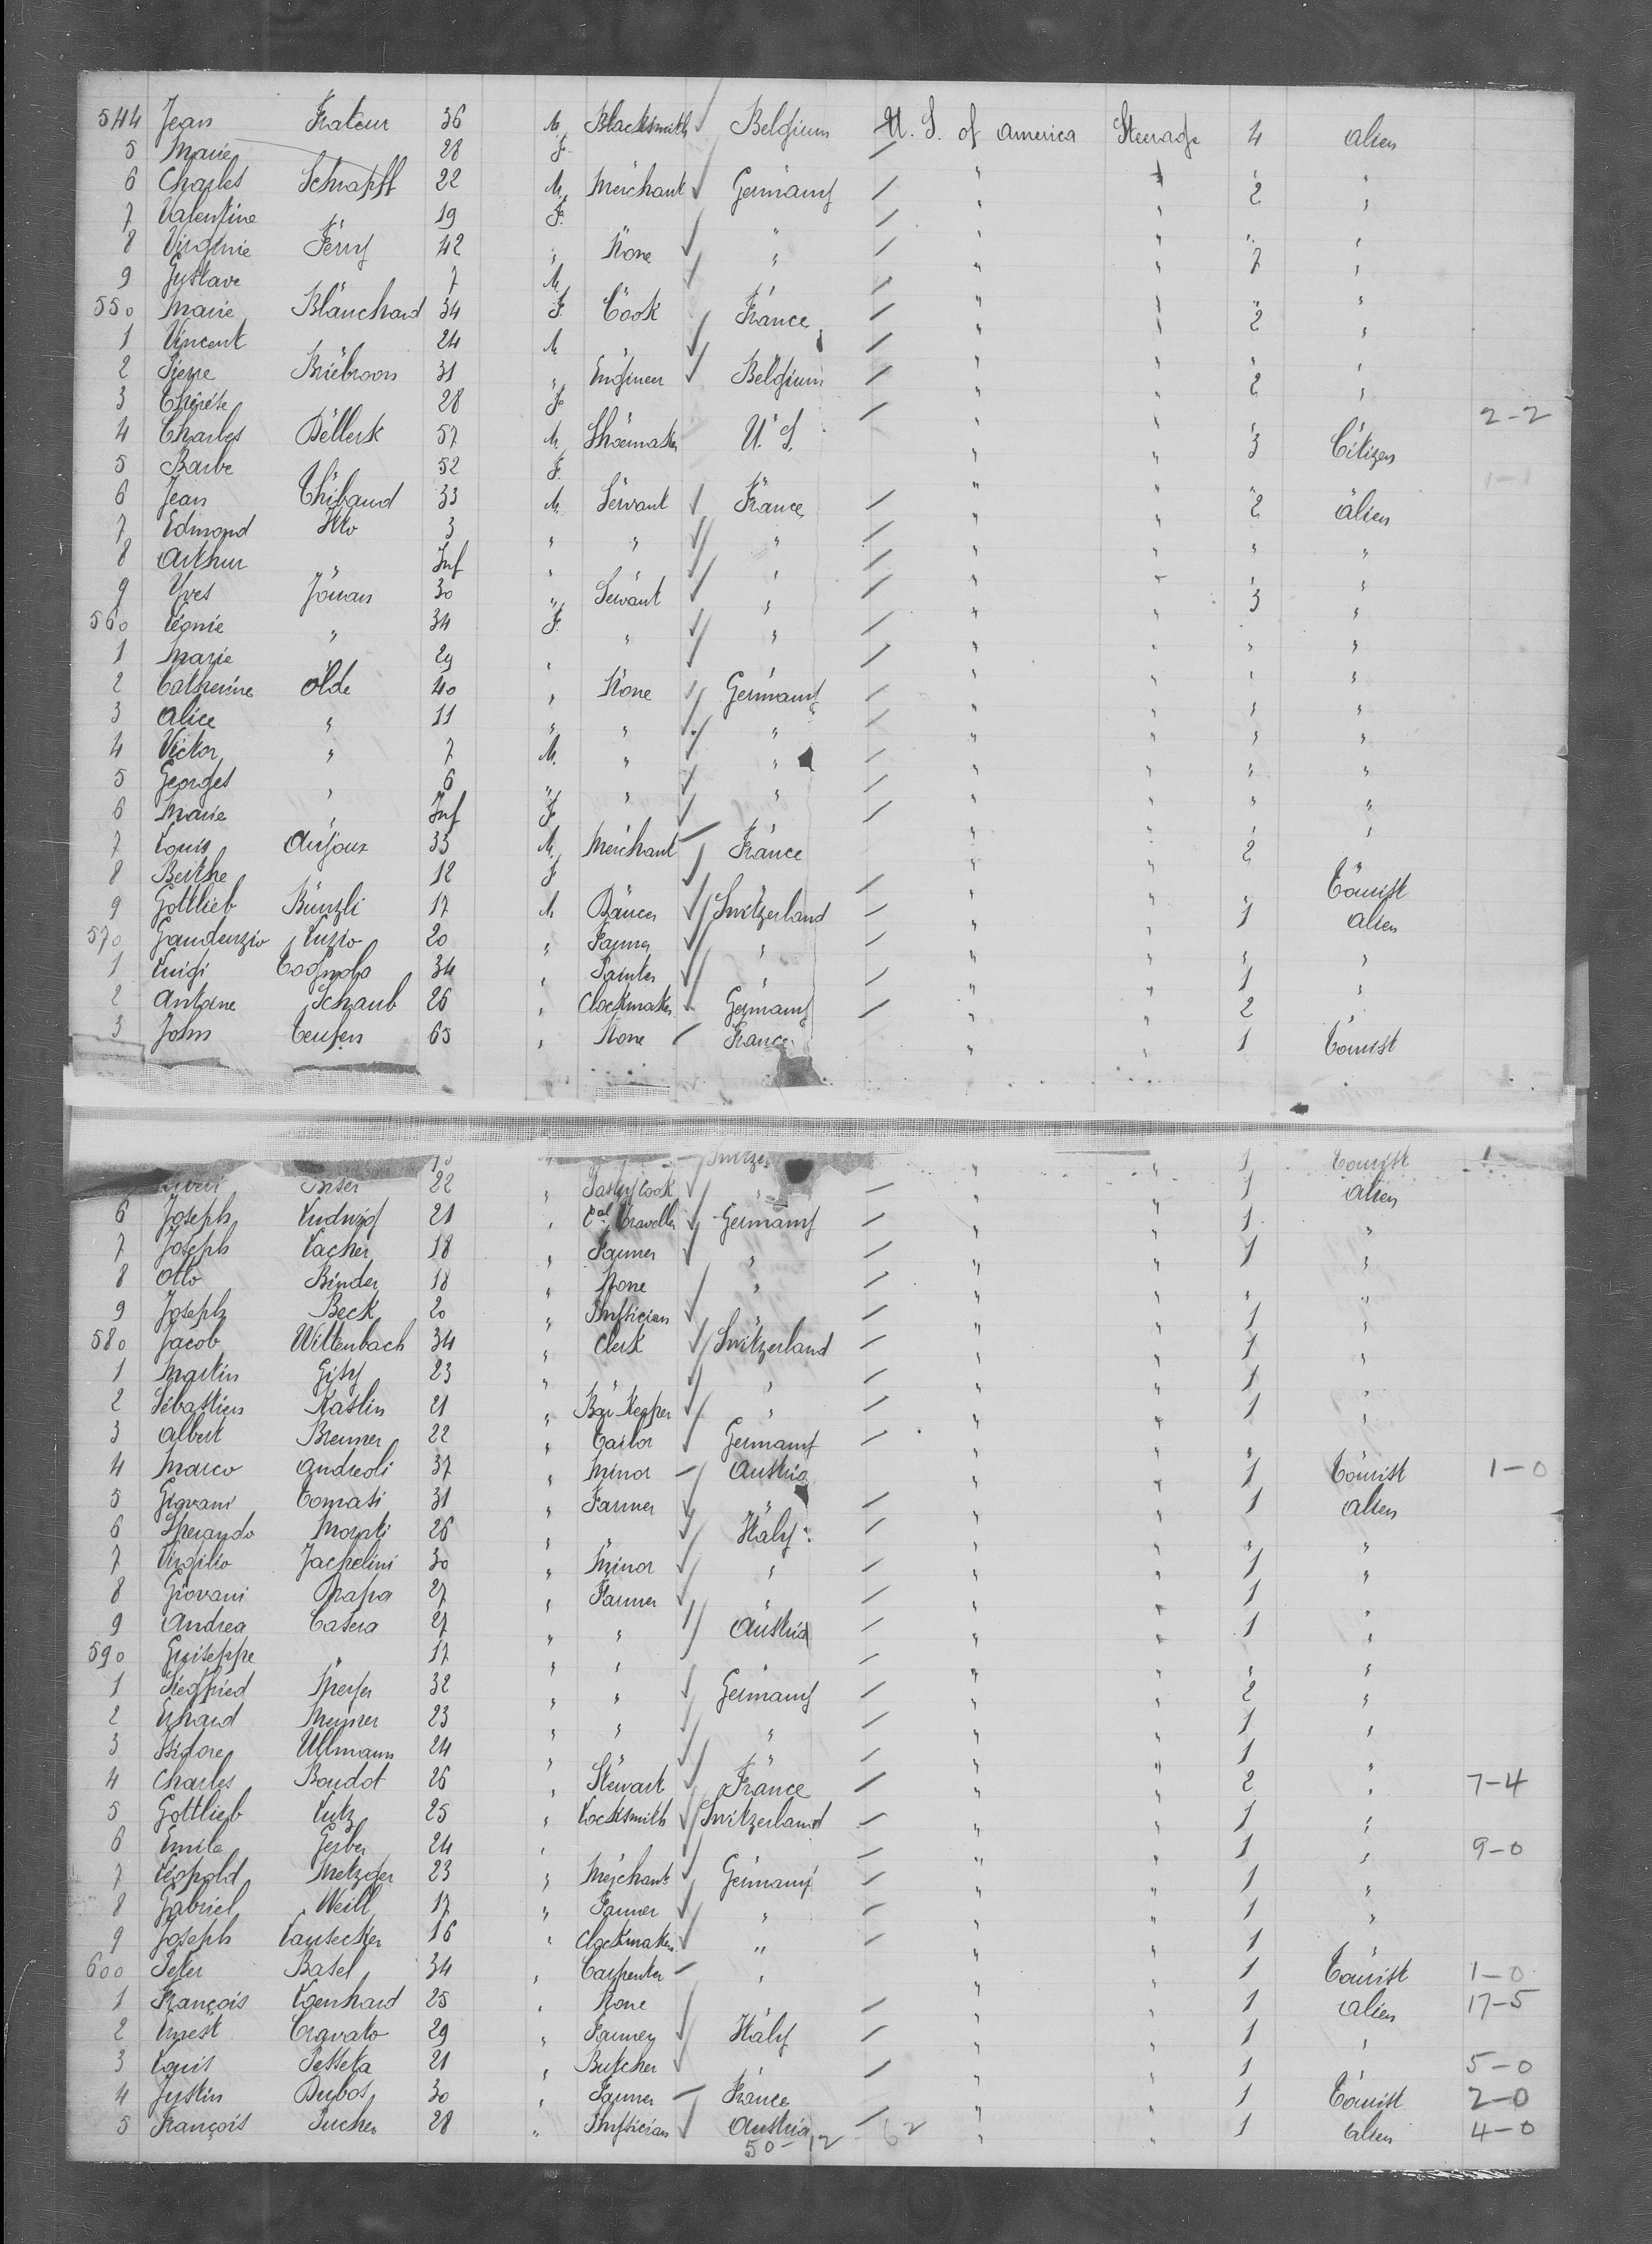 544 Jean Frateur 36 M. Blacksmith Belgium U. S. of america Steerage 4 alien
5 Marie " 28 F. " " " " " "
6 Charles Schrapff 22 M. Merchant Germany " " 2 "
7 Valentine " 19 F. " " " " "
8 Virginie Ferry 42 " None " " " 7 "
9 Gustave " 7 M. " " " " " "
550 Marie Blanchard 34 F. Cook France " " 2 "
1 Vincent " 24 M. " " " " " "
2 Pierre Briebroon 31 " Engineer Belgium " " 2 "
3 Thérèse " 28 F. " " " " " " 2-2
4 Charles Bellerk 57 M. Shoemaker U. S. " " 3 Citizen
5 Barbe " 52 F. " " " " " " 1-1
6 Jean Thibaud 33 M. Servant France " " 2 alien
7 Edmond Itto 3 " " " " " " "
8 Arthur " Inf " " " " " " "
9 Yves Jouan 30 " Servant " " " 3 "
560 Léonie " 34 F. " " " " " "
1 Marie " 29 " " " " " " "
2 Catherine Olde 40 " None Germany " " " "
3 Alice " 11 " " " " " " "
4 Victor " 7 M. " " " " " "
5 Georges " 6 " " " " " " "
6 Marie " Inf F. " " " " " "
7 Louis Anjoux 33 M. Merchant France " " 2
8 Berthe " 12 F. " " " " " Tourist
9 Gottlieb Bünzli 17 M. Dancer Switzerland " " 1 alien
570 Gaudenzio Luzio 20 " Farmer " " " " "
1 Luigi Cognola 34 " Painter " " " 1 "
2 Antoine Schaub 26 " Clockmaker Germany " " 2 "
3 John Teufen 65 " None France " " 1 Tourist
" " 1 Tourist
22 " Pastrycook " " " 1 alien
6 Joseph Ludwig 21 " Cal Traveller Germany " " 1 "
7 Joseph Lacher 18 " Farmer " " " 1 "
8 Otto Binder 18 " None " " " " "
9 Joseph Beck 20 " Physician " " " 1 "
580 Jacob Wittenbach 34 " Clerk Switzerland " " 1 "
1 Martin Gisy 23 " " " " " 1 "
2 Sébastien Kästlin 21 " Bar-Keeper " " " 1 "
3 Albert Brenner 22 " Tailor Germany " " "
4 Marco Andreoli 37 " Minor Austria " " 1 Tourist 1-0
5 Giovani Tomasi 31 " Farmer " " " 1 alien
6 Sperando Morati 26 " " Italy " " " "
7 Virgilio Jachelini 30 " Minor " " " 1 "
8 Giovani Papa 27 " Farmer " " " 1
9 Andrea Casera 27 " " Austria " " 1 "
590 Guiseppe " 17 " " " " " "
1 Siegfried Meyer 32 " " Germany " " 2 "
2 Erhard 23 " " " " " 1 "
3 Isidore Ullmann 24 " " " " " 1 "
4 Charles Boudot 26 " Stewart France " " 2 " 7-4
5 Gottlieb Lutz 25 " Locksmith Switzerland " " 1 "
6 Emile Gerber 24 " " " " " 1 " 9-0
7 Léopold Metzger 23 " Merchant Germany " " 1 "
8 Gabriel Weill 17 " Farmer " " " 1 "
9 Joseph Lansecker 16 " Clockmaker " " " 1 "
600 Peter Basel 34 " Carpenter " " " 1 Tourist 1-0
1 François Loenhard 25 " None " " " 1 alien 17-5
2 Ernest Cravato 29 " Farmer Italy " " 1 "
3 Louis Pesseta 21 " Butcher " " " 1 " 5-0
4 Justin Dubos 30 " Farmer France " " 1 Tourist 2-0
5 François Pucher 28 " Physician Austria " " 1 alien 4-0
50-12 62